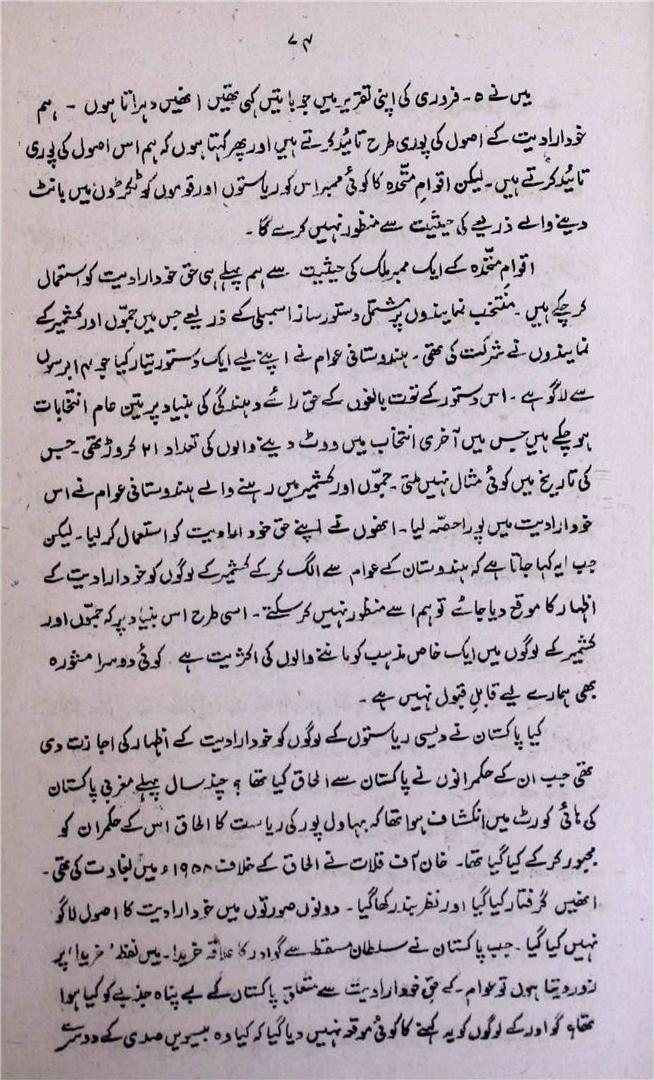 ۷۴
میں نے ۵۔ فروری کی اپنی تقریر میں جو باتیں کہی تھیں انھیں دہراتا ہوں ۔ ہم
خود ارادیت کے اصول کی پوری طرح تائید کرتے ہیں اور پھر کہتا ہوں کہ ہم اس اصول کی پوری
تائید کرتے ہیں۔ لیکن اقوام متحدہ کا کوئی ممبر اس کو ریاستوں اور قوموں کو ٹکڑوں میں بانٹ
دینے والے ذریعے کی حیثیت سے منظور نہیں کرے گا۔
اقوام متّحدہ کے ایک ممبر ملک کی حیثیت سے ہم پہلے ہی حق خود ارادیت کو استعمال
کر چکے ہیں۔ منتخب نمایندوں پر مشتمل دستور ساز اسمبلی کے ذریعے جس میں جمّوں اور کشمیر کے
نمایندوں نے شرکت کی تھی۔ ہندوستانی عوام نے اپنے لیے ایک دستور تیار کیا جو ۱۴ برسوں
سے لاگو ہے۔ اس دستور کے تحت بالغوں کے حق رائے دہندگی کی بنیاد پر تین عام انتخابات
ہو چکے ہیں جس میں آخری انتخاب میں ووٹ دینے والوں کی تعداد ۲۱ کروڑ تھی۔ جس
کی تاریخ میں کوئی مثال نہیں ملتی۔ جمّوں اور کشمیر میں رہنے والے ہندوستانی عوام نے اس
خود ارادیت میں پورا حصّہ لیا۔ انھوں نے اپنے حق خود ارادیت کو استعمال کر لیا۔ لیکن
جب یہ کہا جاتا ہے کہ ہندوستان کے عوام سے الگ کر کے کشمیر کے لوگوں کو خود ارادیت کے
اظہار کا موقع دیا جائے تو ہم اسے منظور نہیں کر سکتے۔ اسی طرح اس بنیاد پر کہ جمّوں اور
کشمیر کے لوگوں میں ایک خاص مذہب کو ماننے والوں کی اکثریت ہے کوئی دوسرا مشورہ
بھی ہمارے لیے قابل قبول نہیں ہے ۔
کیا پاکستان نے دیسی ریاستوں کے لوگوں کو خود ارادیت کے اظہار کی اجازت دی
تھی جب ان کے حکمرانوں نے پاکستان سے الحاق کیا تھا ؟ چند سال پہلے مغربی پاکستان
کی ہائی کورٹ میں انکشاف ہوا تھا کہ بہاول پور کی ریاست کا الحاق اس کے حکمران کو
مجبور کر کے کیا گیا تھا۔ خان آف قلات نے الحاق کے خلاف ۱۹۵۸ء میں بغاوت کی تھی۔
انھیں گرفتار کیا گیا اور نظر بند رکھا گیا۔ دونوں صورتوں میں خود ارادیت کا اصول لاگو
نہیں کیا گیا۔ جب پاکستان نے سلطان مسقط سے گوادر کا علاقہ خریدا۔ میں لفظ ’خریدا‘ پر
زور دیتا ہوں تو عوام۔ کے حق خود ارادیت سے متعلق پاکستان کے بے پناہ جذبے کو کیا ہوا
تھا؟ گوادر کے لوگوں کو یہ کہنے کا کوئی موقعہ نہیں دیا گیا کہ کیا وہ بیسویں صدی کے دوسرے